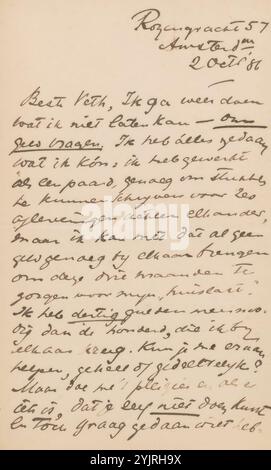 Rozengracht 57
Amsterdam
2 Oct. '86
Beste Veth, Ik ga weer doen
wat ik niet laten kan — om
geld vragen. Ik heb álles gedaan
wat ik kón; ik heb gewerkt
als een paard, genoeg om stukken
te kunnen schrijven voor zes
afleveringen achter elkander,
maar ik kan niet dat al geen
geld genoeg bij elkaar brengen
om deze drie maanden te
zorgen voor mijn
Ik heb dertig gulden
dan de honderd, die ik bij
elkaar kreeg. Kun je me eraan
helpen, geheel of gedeeltelijk?
Maar doe me 't pleizier en als
't is, dat je zeg niet doen kunt
en toch graag gedaan
alamy
Image ID: 2JRJH9X
www.alamy.com